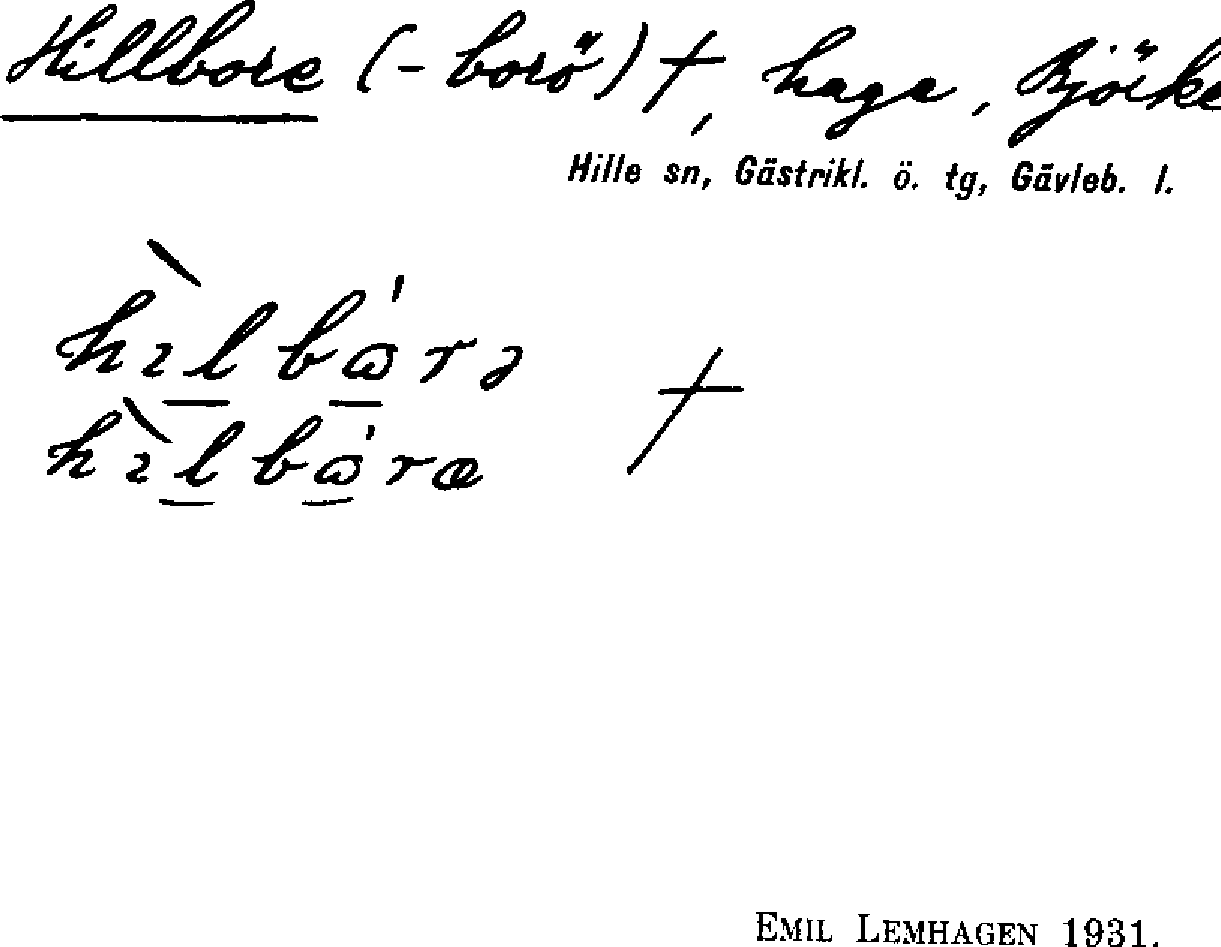 Hillbore (-borö) †, haga, Björke
Hille sn, Gästrikl. ö. tg, Gävleb. l.
hìlbɷ́rə †
hìlbɷ́ræ
EMIL LEMHAGEN 1931.